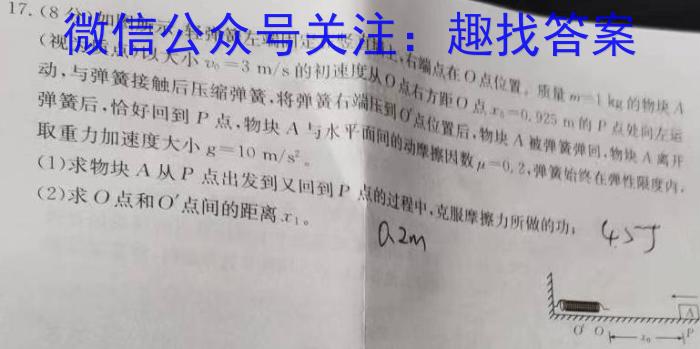 微信公众号关注：趣找答案
17.(8分)如图所示,轻弹簧左端固定在竖直墙上,右端点在O点位置。质量m=1 kg的物块A
(视为质点)以大小v₀=3 m/s的初速度从O点右方距O点x₀=0.925 m的P点处向左运
动,与弹簧接触后压缩弹簧,将弹簧右端压到O′点位置后,物块A被弹簧弹回,物块A离开
弹簧后,恰好回到P点,物块A与水平面间的动摩擦因数μ=0.2,弹簧始终在弹性限度内,
取重力加速度大小g=10 m/s²。
(1)求物块A从P点出发到又回到P点的过程中,克服摩擦力所做的功;
(2)求O点和O′点间的距离x₁。
4.5J
0.2m
A
O′ O x₀ P